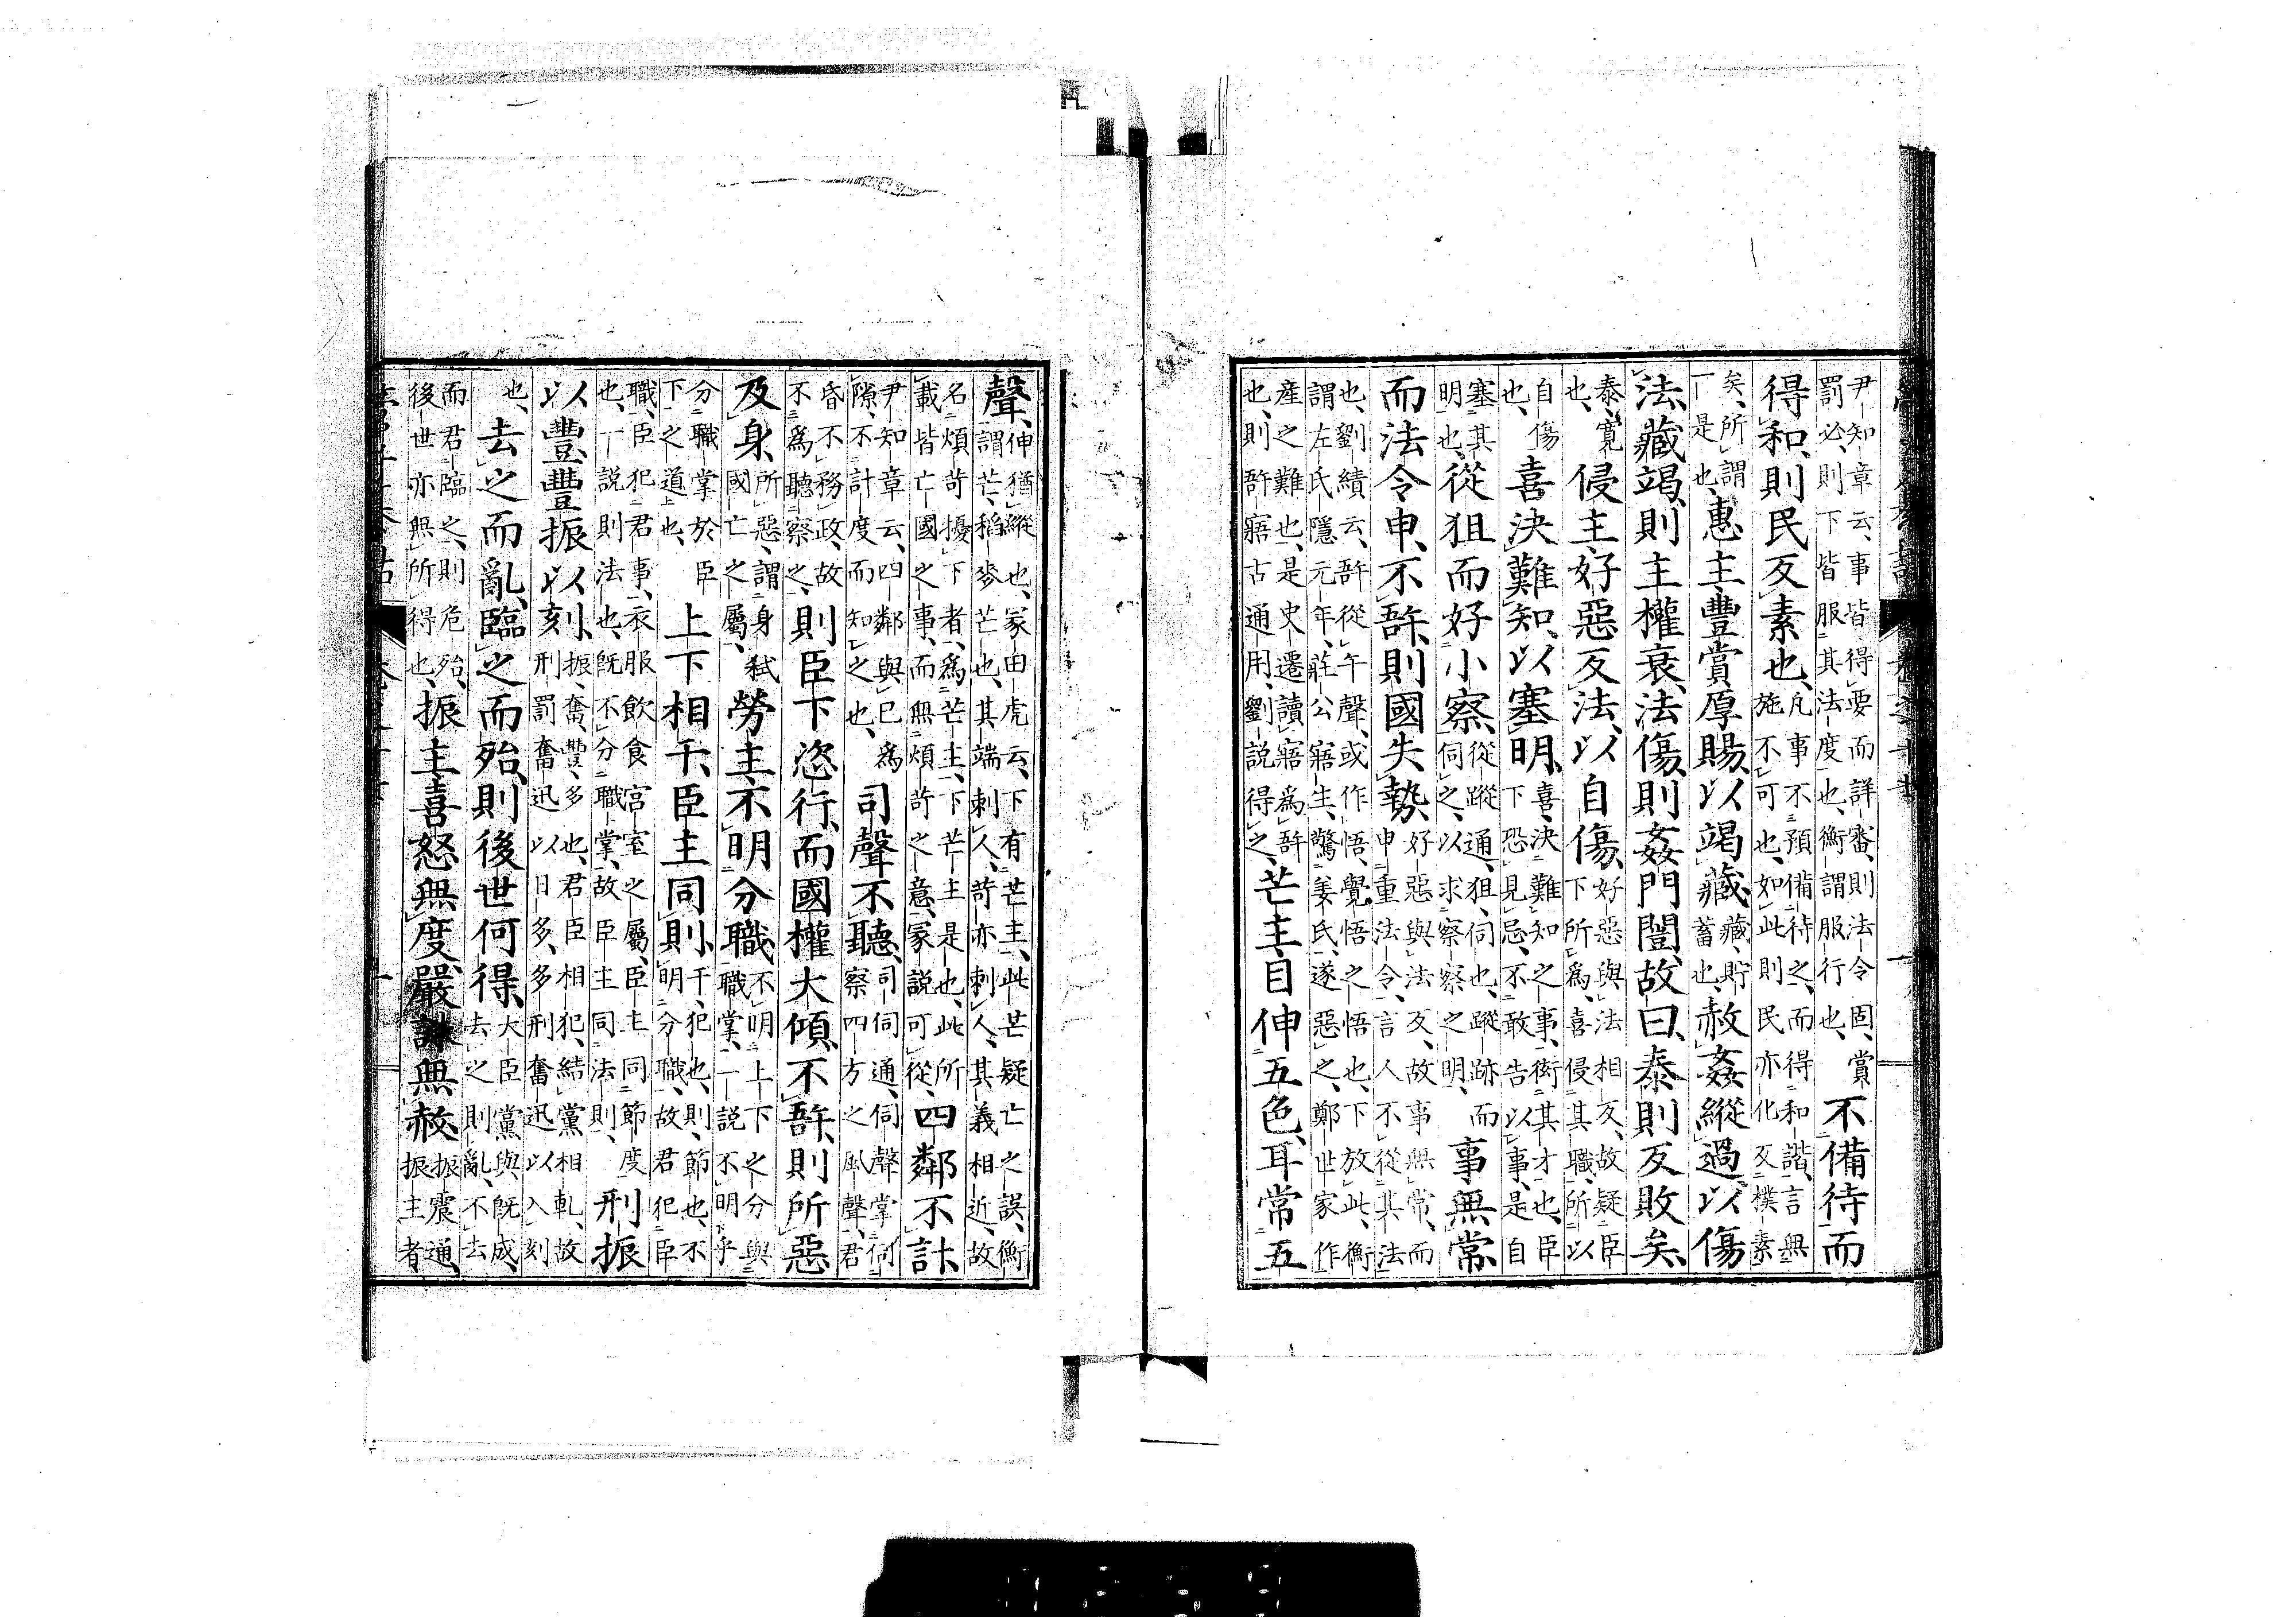 尹知章云、事皆得要而詳審、則法令固、賞罰必、則下皆服其法度也、衡謂服行也、不備待而
得和、則民反素也、凡事不預備待之、而得和諧、言無施不可也、如此則民亦化反樸素
矣、所謂一是也、惠主、豐賞厚賜、以竭藏、藏、貯蓄也、赦姦縱過、以傷
法、藏竭、則主權衰、法傷、則姦門闓、故曰、泰則反敗矣、
泰、寬也、侵主、好惡反法、以自傷、好惡與法相反、故疑臣下所爲、喜侵其職、所以
自傷也、喜決難知、以塞明、喜決難知之事、衒其才也、臣下恐見忌、不敢告以事、是自
塞其明也、從狙而好小察、從蹤通、狙、伺也、蹤跡而伺之、以求察察之明、事無常、
而法令申、不啎、則國失勢、好惡與法反、故事無常、而申重法令、言人不從其法
也、劉績云、啎從午聲、或作悟、覺悟之悟也、下放此、衡謂左氏隱元年、莊公寤生、驚姜氏、遂惡之、鄭世家作
産之難也、是史遷讀寤爲啎也、則啎寤古通用、劉説得之、芒主、目伸五色、耳常五
聲、伸猶縱也、冢田虎云、下有芒主、此芒疑亡之誤、衡謂芒、稻麥芒也、其端刺人、苛亦刺人、其義相近、故
名煩苛擾下者、爲芒主、下芒主是也、此所載皆亡國之事、而無煩苛之意、冢説可從、四鄰不計、
尹知章云、四鄰與己爲隙、不計度而知之也、司聲不聽、司伺通、伺聲掌伺察四方之風聲、君
昏不務政、故不爲聽察之、則臣下恣行、而國權大傾、不啎、則所惡
及身、所惡、謂身弑國亡之屬、勞主、不明分職、不明上下之分與職掌、一説不明乎
分職掌於臣下之道上也、上下相干、臣主同則、干、犯也、則、節也、不明分職、故君犯臣
職、臣犯君事、衣服飲食宮室之屬、臣主同節度也、一説則法也、既不分職掌、故臣主同法則、刑振
以豐、豐振以刻、振、奮、豐、多也、君臣相犯、結黨相軋、故刑罰奮迅以日多、多刑奮迅以入刻
也、去之而亂、臨之而殆、則後世何得、大臣黨與既成、去之則亂、不去
而君臨之、則危殆、後世亦無所得也、振主、喜怒無度、嚴誅無赦、振震通、振主者